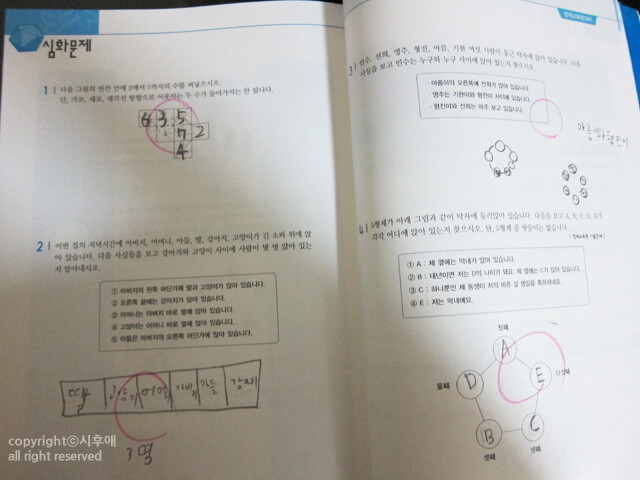 심화문제
1 다음 그림의 빈칸 안에 2에서 7까지의 수를 써넣으시오.
단, 가로, 세로, 대각선 방향으로 이웃하는 두 수가 들어가서는 안 됩니다.
6 3 5
7 2
4
2 어떤 집의 저녁시간에 아버지, 어머니, 아들, 딸, 강아지, 고양이가 긴 소파 위에 앉
아 있습니다. 다음 사실들을 보고 강아지와 고양이 사이에 사람이 몇 명 앉아 있는
지 알아내시오.
① 아버지의 왼쪽 어딘가에 딸과 고양이가 앉아 있습니다.
② 오른쪽 끝에는 강아지가 앉아 있습니다.
③ 어머니는 아버지 바로 옆에 앉아 있습니다.
④ 고양이는 어머니 바로 옆에 앉아 있습니다.
⑤ 아들은 아버지의 오른쪽 어딘가에 앉아 있습니다.
딸 어머 아버지 아들
3명
copyright©시후애
all right reserved
3 민수, 선희, 영주, 형진, 아름, 기원 여섯 사람이 둥근 탁자에 앉아 있습니다. 다음
사실을 보고 민수는 누구와 누구 사이에 앉아 있는지 찾으시오.
· 아름이의 오른쪽에 선희가 앉아 있습니다.
· 영주는 기원이와 형진이 사이에 있습니다.
· 형진이와 선희는 마주 보고 있습니다.
아름이와 형진이
4 5형제가 아래 그림과 같이 탁자에 둘러앉아 있습니다. 다음을 보고 A, B, C, D, E가
각각 어디에 앉아 있는지 찾으시오. 단, 5형제 중 쌍둥이는 없습니다.
① A : 제 옆에는 막내가 앉아 있습니다.
② B : 내년이면 저는 D의 나이가 돼요. 제 옆에는 C가 앉아 있습니다.
③ C : 하나뿐인 제 동생이 저의 마흔 살 생일을 축하하네요.
④ E : 저는 막내예요.
첫째
A
둘째 D E 다섯째
B C
셋째 넷째